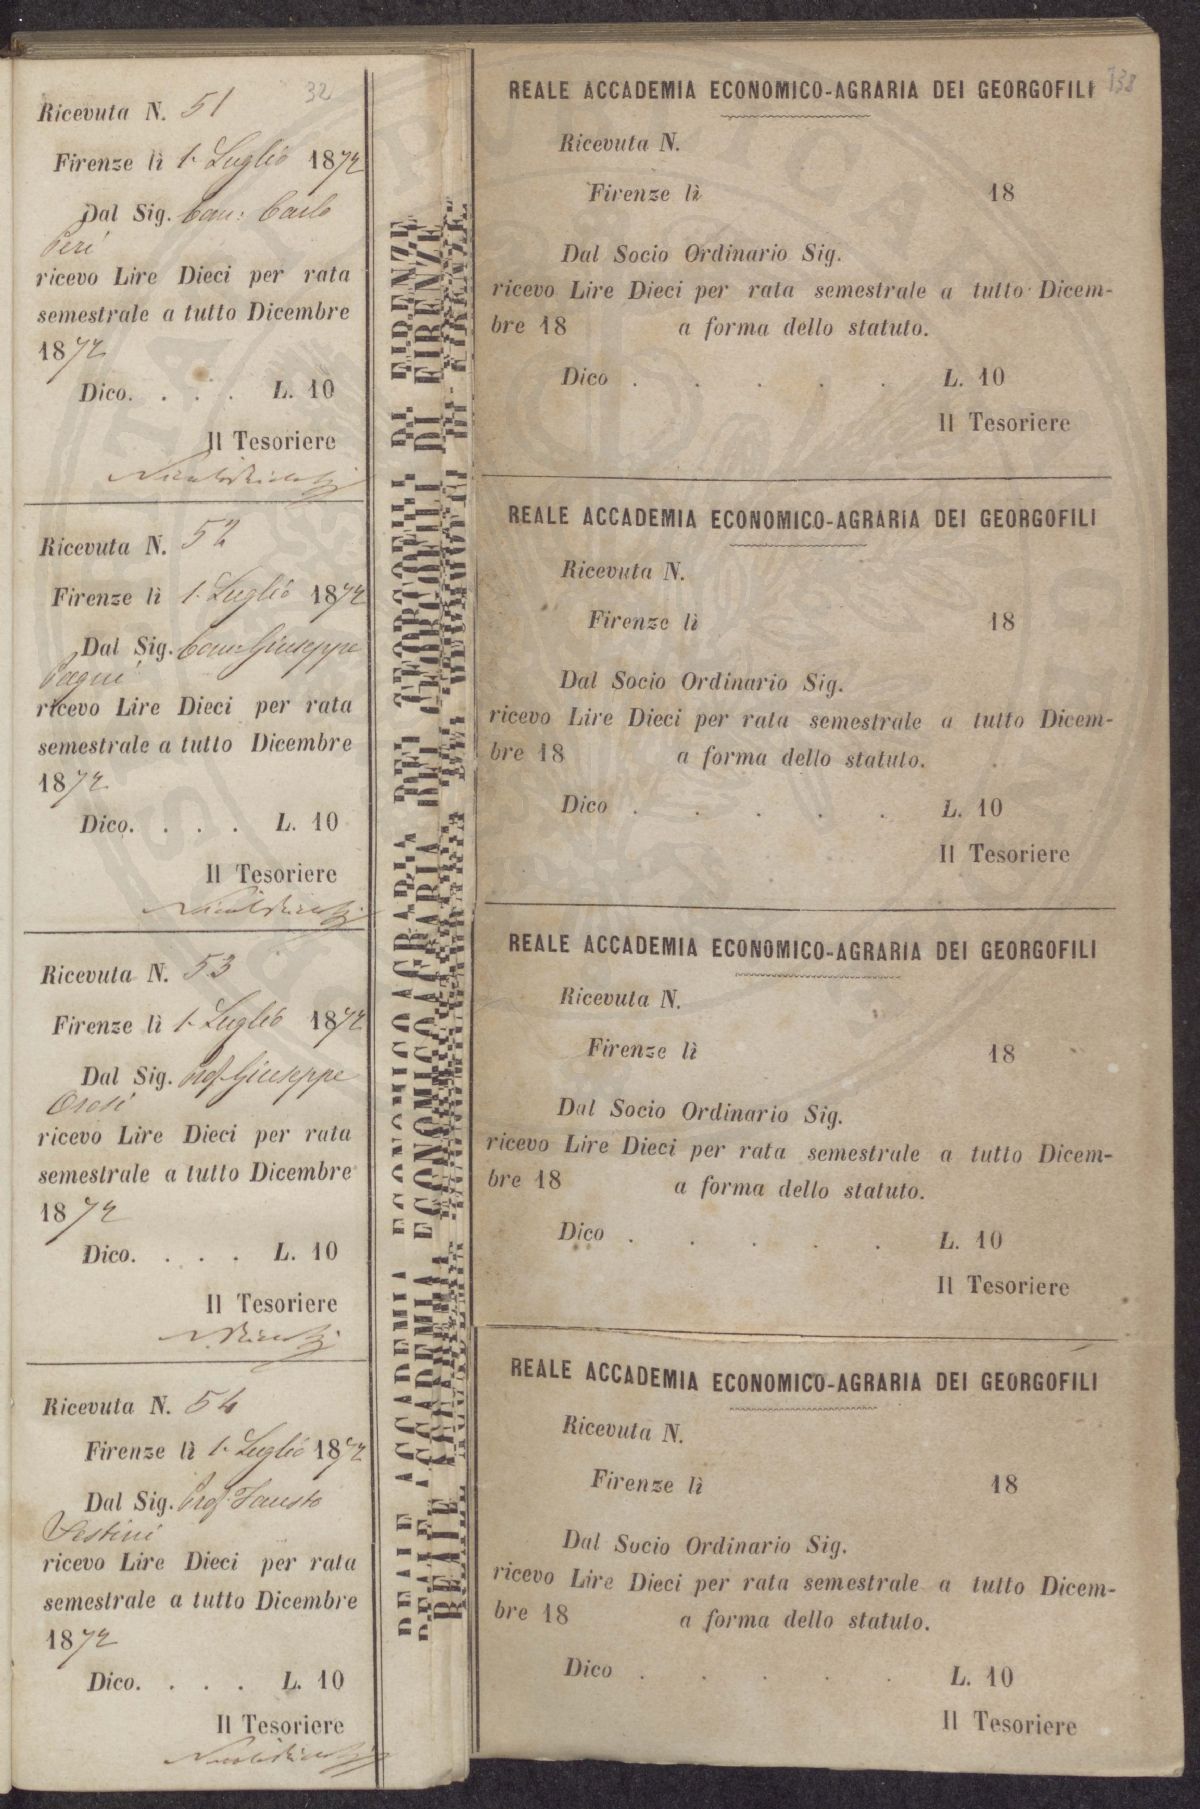 32
Ricevuta N. 51
Firenze lì 1. Luglio 1872
Dal Sig. Cav: Carlo
Peri
ricevo Lire Dieci per rata
semestrale a tutto Dicembre
1872
Dico. . . . L. 10
Il Tesoriere
Ricevuta N. 52
Firenze lì 1. Luglio 1872
Dal Sig. Cav: Giuseppe
Pagni
ricevo Lire Dieci per rata
semestrale a tutto Dicembre
1872
Dico. . . . L. 10
Il Tesoriere
Ricevuta N. 53
Firenze lì 1. Luglio 1872
Dal Sig. Prof. Giuseppe
Orosi
ricevo Lire Dieci per rata
semestrale a tutto Dicembre
1872
Dico. . . . L. 10
Il Tesoriere
Ricevuta N. 54
Firenze lì 1. Luglio 1872
Dal Sig. Prof. Fausto
Sestini
ricevo Lire Dieci per rata
semestrale a tutto Dicembre
1872
Dico. . . . L. 10
Il Tesoriere
REALE ACCADEMIA ECONOMICO-AGRARIA DEI GEORGOFILI DI FIRENZE
138
REALE ACCADEMIA ECONOMICO-AGRARIA DEI GEORGOFILI
Ricevuta N.
Firenze lì 18
Dal Socio Ordinario Sig.
ricevo Lire Dieci per rata semestrale a tutto Dicem-
bre 18 a forma dello statuto.
Dico . . . . . L. 10
Il Tesoriere
REALE ACCADEMIA ECONOMICO-AGRARIA DEI GEORGOFILI
Ricevuta N.
Firenze lì 18
Dal Socio Ordinario Sig.
ricevo Lire Dieci per rata semestrale a tutto Dicem-
bre 18 a forma dello statuto.
Dico . . . . . L. 10
Il Tesoriere
REALE ACCADEMIA ECONOMICO-AGRARIA DEI GEORGOFILI
Ricevuta N.
Firenze lì 18
Dal Socio Ordinario Sig.
ricevo Lire Dieci per rata semestrale a tutto Dicem-
bre 18 a forma dello statuto.
Dico . . . . . L. 10
Il Tesoriere
REALE ACCADEMIA ECONOMICO-AGRARIA DEI GEORGOFILI
Ricevuta N.
Firenze lì 18
Dal Socio Ordinario Sig.
ricevo Lire Dieci per rata semestrale a tutto Dicem-
bre 18 a forma dello statuto.
Dico . . . . . L. 10
Il Tesoriere